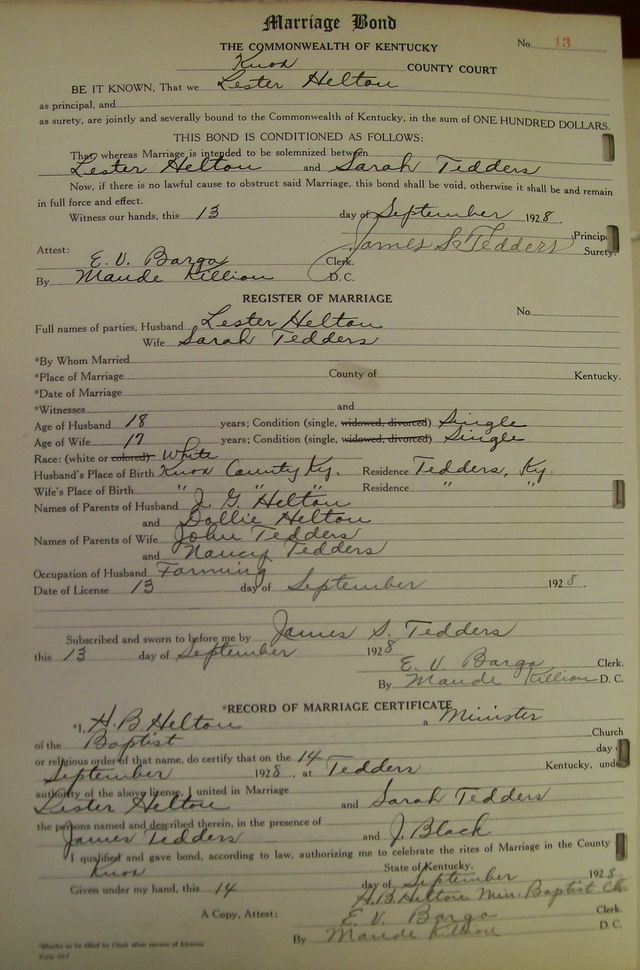 Marriage Bond
THE COMMONWEALTH OF KENTUCKY No. 13
Knox COUNTY COURT
BE IT KNOWN, That we Lester Helton
as principal, and
as surety, are jointly and severally bound to the Commonwealth of Kentucky, in the sum of ONE HUNDRED DOLLARS.
THIS BOND IS CONDITIONED AS FOLLOWS:
That whereas Marriage is intended to be solemnized between
Lester Helton and Sarah Tedders
Now, if there is no lawful cause to obstruct said Marriage, this bond shall be void, otherwise it shall be and remain
in full force and effect.
Witness our hands, this 13 day of September 1928.
James S. Tedders Principal
Surety.
Attest:
E. V. Bargo Clerk.
By Maude Killion D. C.
REGISTER OF MARRIAGE
No
Full names of parties, Husband Lester Helton
Wife Sarah Tedders
*By Whom Married
*Place of Marriage County of Kentucky.
*Date of Marriage
*Witnesses and
Age of Husband 18 years; Condition (single, widowed, divorced) Single
Age of Wife 17 years; Condition (single, widowed, divorced) Single
Race: (white or colored) White
Husband's Place of Birth Knox County Ky. Residence Tedders, Ky.
Wife's Place of Birth " " " Residence " "
Names of Parents of Husband J. G. Helton
and Dollie Helton
Names of Parents of Wife John Tedders
and Nancy Tedders
Occupation of Husband Farming
Date of License 13 day of September 1928.
Subscribed and sworn to before me by James S. Tedders
this 13 day of September 1928
E. V. Bargo Clerk.
By Maude Killion D. C.
*RECORD OF MARRIAGE CERTIFICATE
*I, H. B. Helton a Minister
of the Baptist Church
or religious order of that name, do certify that on the 14 day
September 1928, at Tedders Kentucky, under
authority of the above license, I united in Marriage
Lester Helton and Sarah Tedders
the persons named and described therein, in the presence of
James Tedders and J. Black
I qualified and gave bond, according to law, authorizing me to celebrate the rites of Marriage in the County
Knox State of Kentucky.
Given under my hand, this 14 day of September 1928
H. B. Helton Min. Baptist Ch.
A Copy, Attest: E. V. Bargo Clerk.
By Maude Killion D. C.
*Blanks to be filled by Clerk after return of License